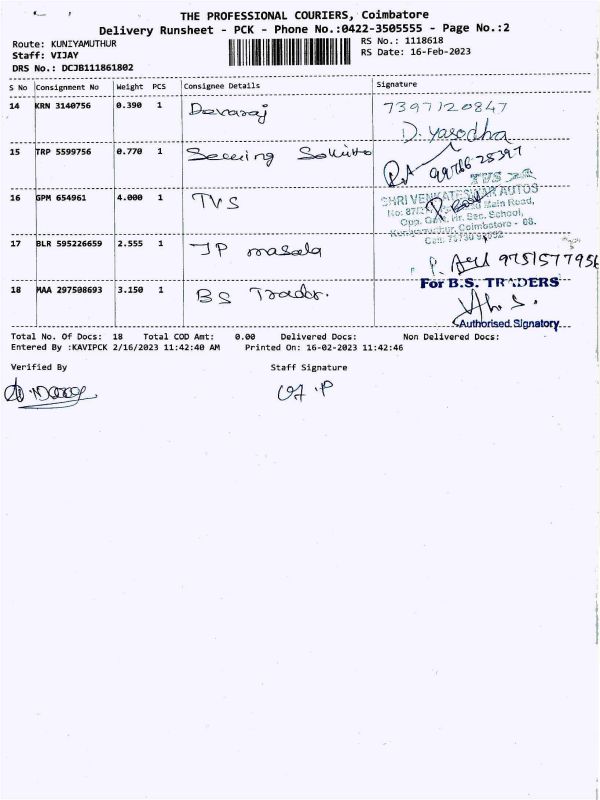 THE PROFESSIONAL COURIERS, Coimbatore
Delivery Runsheet - PCK - Phone No.:0422-3505555 - Page No.:2
Route: KUNIYAMUTHUR
RS No.: 1118618
Staff: VIJAY
RS Date: 16-Feb-2023
DRS No.: DCJB111861802
S No Consignment No Weight PCS Consignee Details Signature
14 KRN 3140756 0.390 1 Devaraj 7397120847
D. Yasodha
15 TRP 5599756 0.770 1 99766 28397
TVS
16 GPM 654961 4.000 1 TVS
SHRI VENKATESWAR AUTOS
Main Road,
Opp. Hr. Sec. School,
Coimbatore - 08.
17 BLR 595226659 2.555 1 JP masala
9751577956
18 MAA 297508693 3.150 1 BS
For B.S. TRADERS
Authorised Signatory
Total No. Of Docs: 18 Total COD Amt: 0.00 Delivered Docs: Non Delivered Docs:
Entered By :KAVIPCK 2/16/2023 11:42:40 AM Printed On: 16-02-2023 11:42:46
Verified By Staff Signature